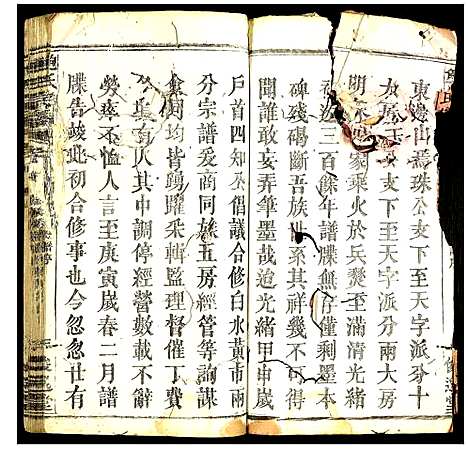 東邊山壽珠公支下至天字派分十
大房王公支下至天字派分兩大房
明末家乘火於兵燹至滿清光緒
三百餘年譜牒無存僅剩墨本
碑殘碣斷吾族世系其祥幾不可
聞誰敢妄弄筆墨哉迨光緒甲申歲
戶首四知公倡議合修白水黃市兩
分宗譜爰商同族五房經管等詢謀
僉同均皆踴躍采輯監理督催丁費
公集有人其中調停經營數載不辭
勞瘁不恤人言至庚寅歲春二月譜
牒告竣此初合修事也今忽忽廿有